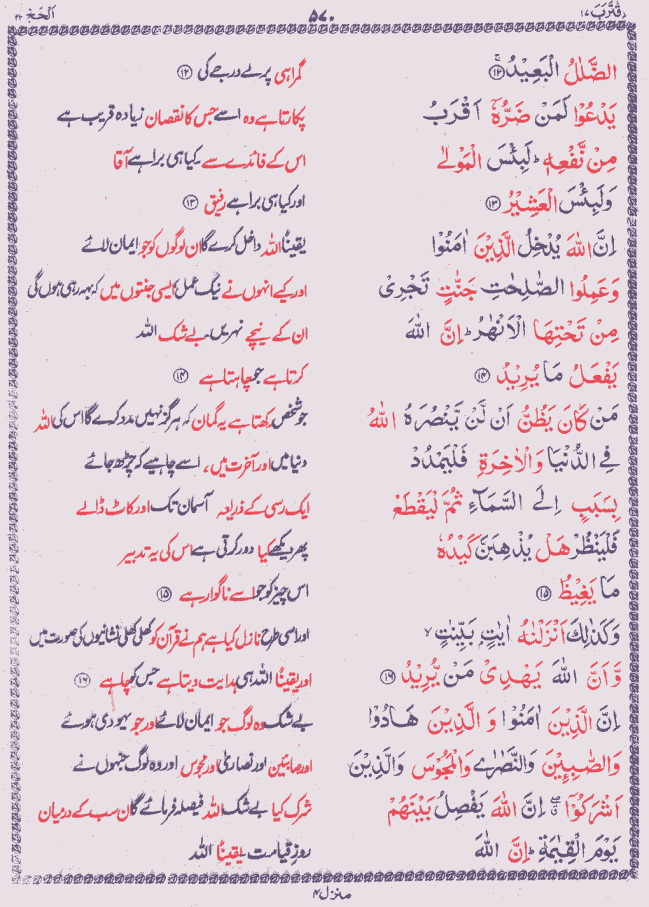 اقترب ۱۷ ۵۷۰ الحج ۲۲
الضَّلٰلُ الْبَعِيْدُ ۚ﴿۱۲﴾ گمراہی پرلے درجے کی ﴿۱۲﴾
يَدْعُوْا لَمَنْ ضَرُّهٗۤ اَقْرَبُ پکارتا ہے وہ اسے جس کا نقصان زیادہ قریب ہے
مِنْ نَّفْعِهٖ ؕ لَبِئْسَ الْمَوْلٰى اس کے فائدے سے۔ کیا ہی برا ہے آقا
وَلَبِئْسَ الْعَشِيْرُ ﴿۱۳﴾ اور کیا ہی برا ہے رفیق ﴿۱۳﴾
اِنَّ اللّٰهَ يُدْخِلُ الَّذِيْنَ اٰمَنُوْا یقیناً اللہ داخل کرے گا ان لوگوں کو جو ایمان لائے
وَعَمِلُوا الصّٰلِحٰتِ جَنّٰتٍ تَجْرِىْ اور کیے انہوں نے نیک عمل ایسی جنتوں میں کہ بہہ رہی ہوں گی
مِنْ تَحْتِهَا الْاَنْهٰرُ ؕ اِنَّ اللّٰهَ ان کے نیچے نہریں۔ بے شک اللہ
يَفْعَلُ مَا يُرِيْدُ ﴿۱۴﴾ کرتا ہے جو چاہتا ہے ﴿۱۴﴾
مَنْ كَانَ يَظُنُّ اَنْ لَّنْ يَّنْصُرَهُ اللّٰهُ جو شخص رکھتا ہے یہ گمان کہ ہرگز نہیں مدد کرے گا اس کی اللہ
فِى الدُّنْيَا وَالْاٰخِرَةِ فَلْيَمْدُدْ دنیا میں اور آخرت میں، اسے چاہیے کہ چڑھ جائے
بِسَبَبٍ اِلَى السَّمَآءِ ثُمَّ لْيَقْطَعْ ایک رسی کے ذریعہ آسمان تک اور کاٹ ڈالے
فَلْيَنْظُرْ هَلْ يُذْهِبَنَّ كَيْدُهٗ پھر دیکھے کیا دور کرتی ہے اس کی یہ تدبیر
مَا يَغِيْظُ ﴿۱۵﴾ اس چیز کو جو اسے ناگوار ہے ﴿۱۵﴾
وَكَذٰلِكَ اَنْزَلْنٰهُ اٰيٰتٍۭ بَيِّنٰتٍ ۙ اور اسی طرح نازل کیا ہے ہم نے قرآن کو کھلی کھلی نشانیوں کی صورت میں
وَّاَنَّ اللّٰهَ يَهْدِىْ مَنْ يُّرِيْدُ ﴿۱۶﴾ اور یقیناً اللہ ہی ہدایت دیتا ہے جس کو چاہے ﴿۱۶﴾
اِنَّ الَّذِيْنَ اٰمَنُوْا وَالَّذِيْنَ هَادُوْا بے شک وہ لوگ جو ایمان لائے اور جو یہودی ہوئے
وَالصّٰبِـِٕيْنَ وَالنَّصٰرٰى وَالْمَجُوْسَ وَالَّذِيْنَ اور صابئین اور نصاریٰ اور مجوس اور وہ لوگ جنہوں نے
اَشْرَكُوْۤا ۖ اِنَّ اللّٰهَ يَفْصِلُ بَيْنَهُمْ شرک کیا بے شک اللہ فیصلہ فرمائے گا ان سب کے درمیان
يَوْمَ الْقِيٰمَةِ ؕ اِنَّ اللّٰهَ روز قیامت یقیناً اللہ
منزل ۴